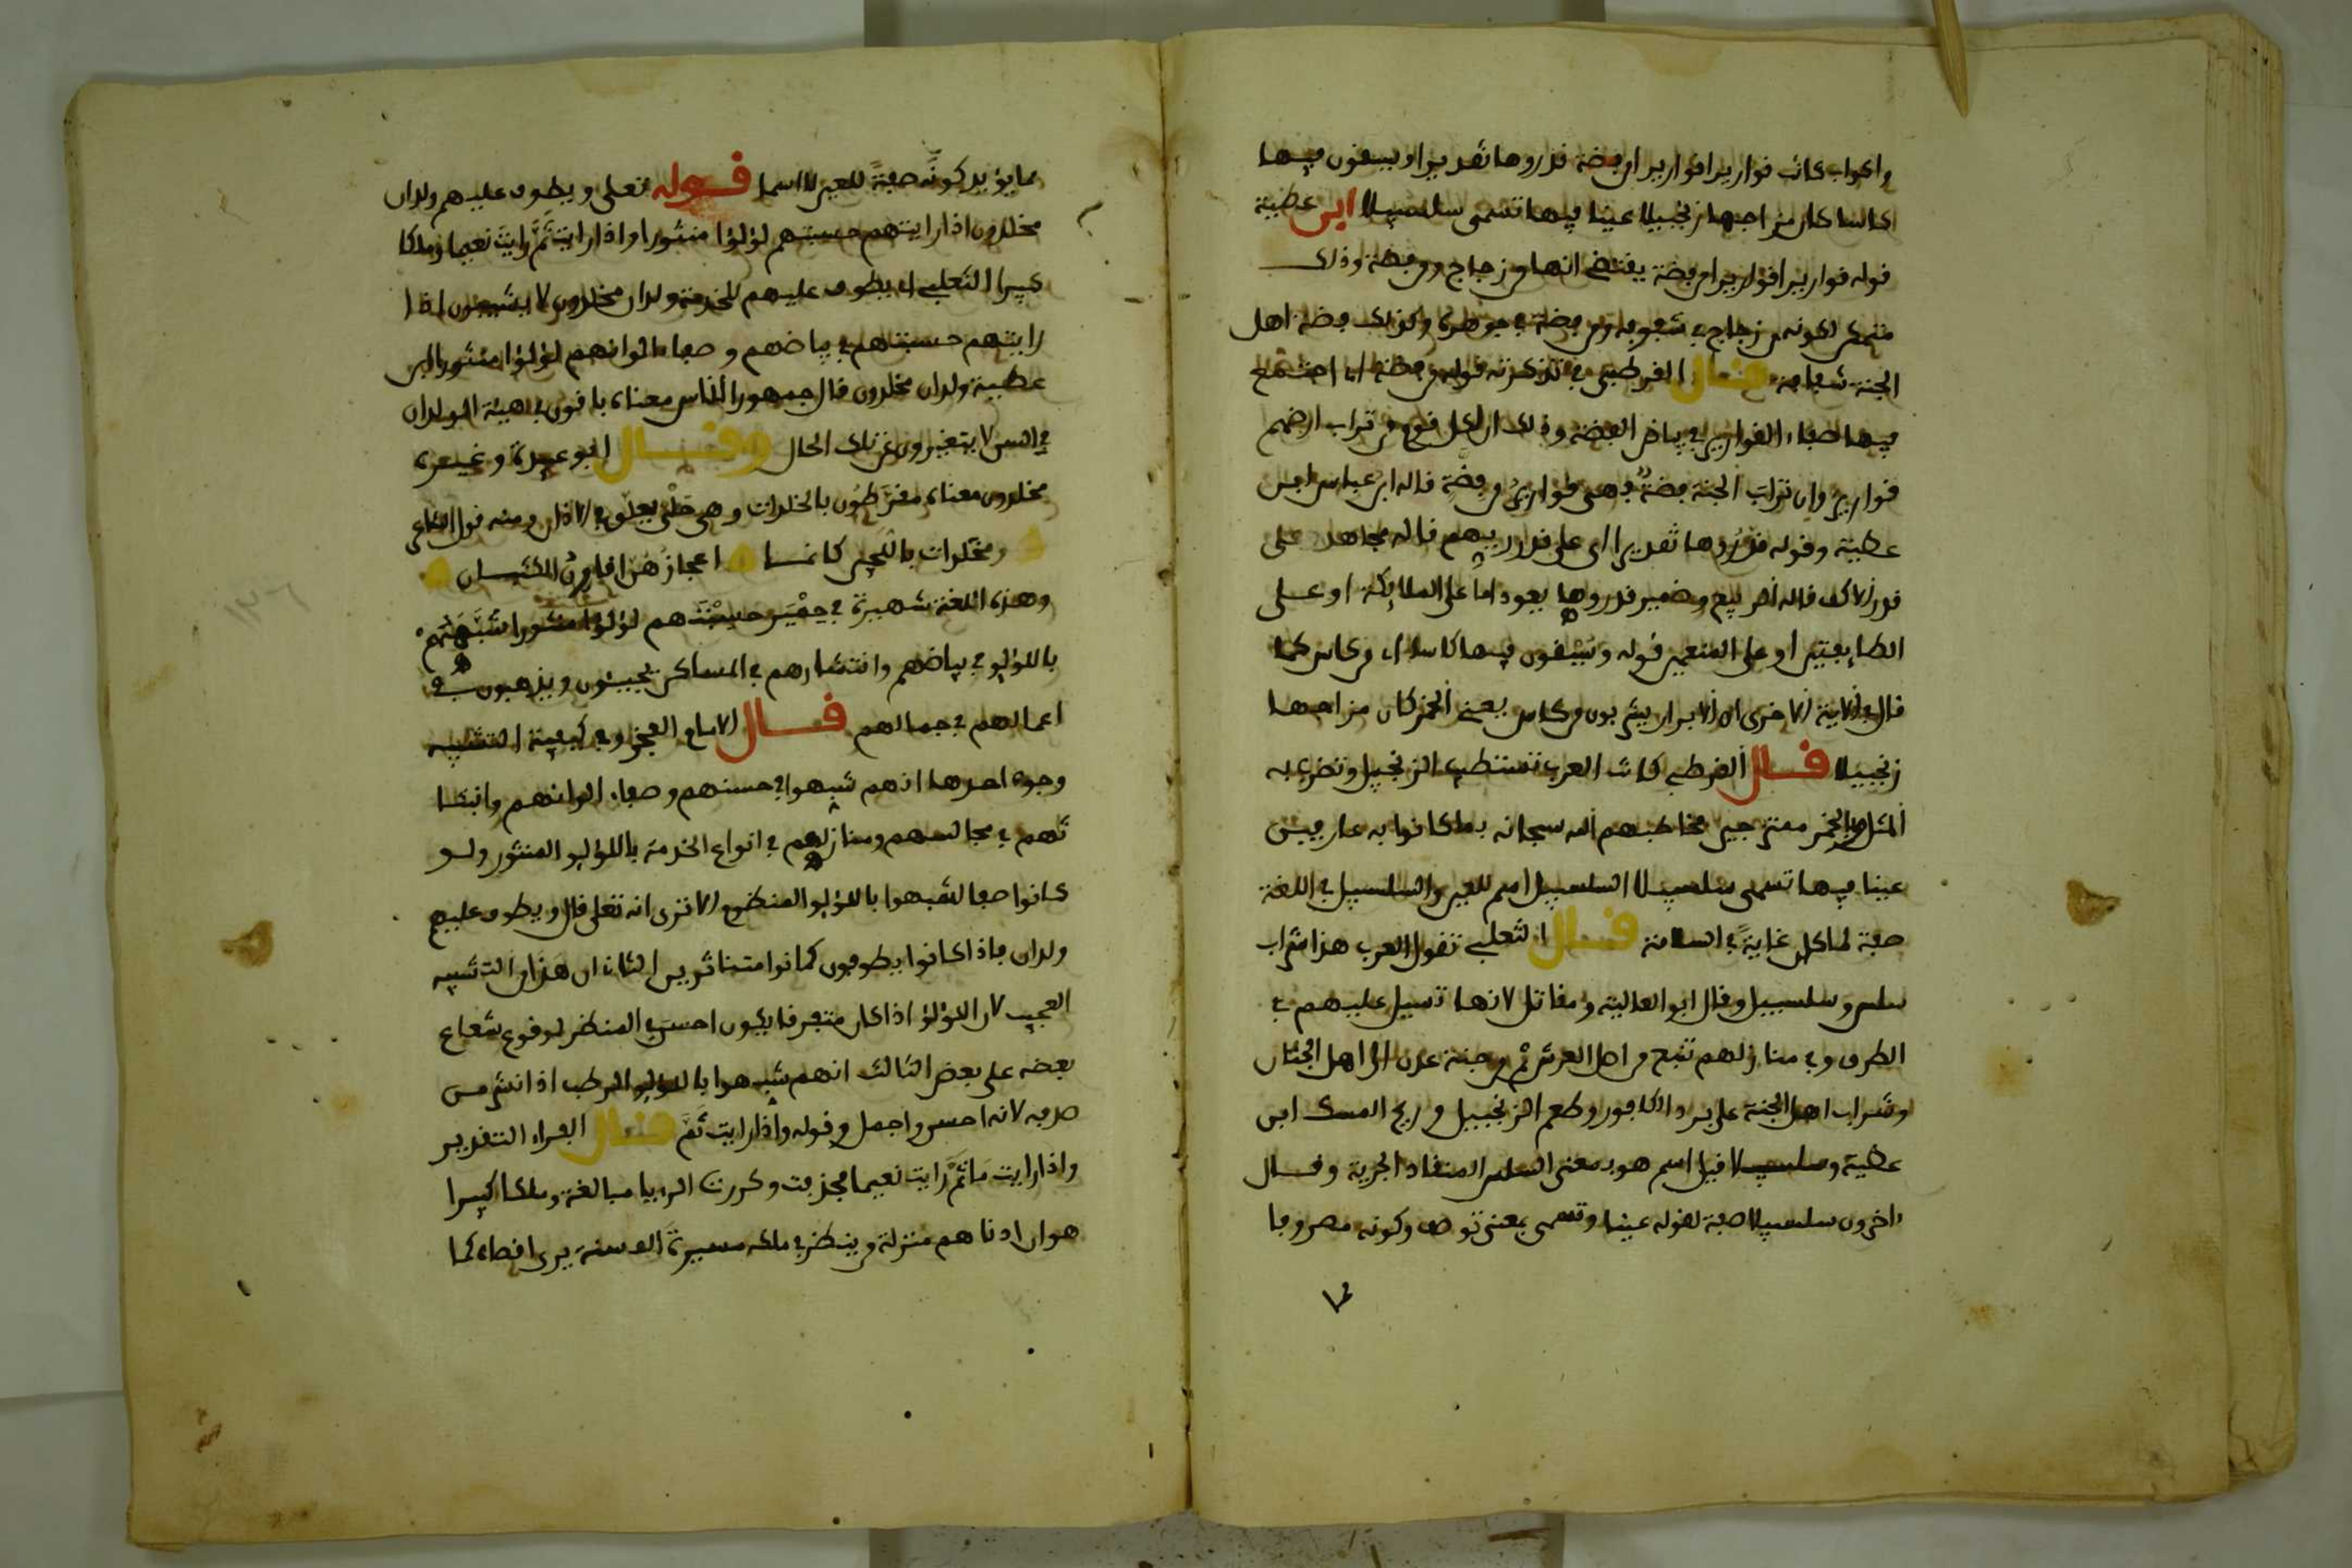 واكواب كانت قواريرا قواريرا من فضة قدروها تقديرا ويسقون فيها
كاسا كان مزاجها زنجبيلا عينا فيها تسمى سلسبيلا ابن عطية
قوله قواريرا قواريرا من فضة يقتضي انها من زجاج ومن فضة وذلك
متمكن لكونه من زجاج في شفوفه ومن فضة في جوهره وكذلك فضة اهل
الجنة شفافة قال القرطبي في تذكرته قوله من فضة اي اجتمع
فيها صفاء القوارير في بياض الفضة وذلك ان لكل قوم من تراب ارضهم
قوارير وان تراب الجنة فضة فهي قوارير من فضة قاله ابن عباس ابن
عطية وقوله قدروها تقديرا اي على قدر ريهم قاله مجاهد على
قدر الاكف قاله الربيع وضمير قدروها يعود اما على الملائكة او على
الطايفين او على المنعمين قوله ويسقون فيها كاسا اي من كاس كما
قال في الاية الاخرى ان الابرار يشربون من كاس يعني الخمر كان مزاجها
زنجبيلا قال القرطبي كانت العرب تستطيب الزنجبيل وتضرب به
المثل وبالخمر ممتزجين فخاطبهم الله سبحانه بما كانوا به عارفين
عينا فيها تسمى سلسبيلا السلسبيل اسم للعين والسلسبيل في اللغة
صفة لما كان غاية في السلاسة قال الثعلبي تقول العرب هذا شراب
سلس وسلسبيل وقال ابو العالية ومقاتل لانها تسيل عليهم في
الطرق وفي منازلهم تنبع من اصل العرش ثم من جنة عدن الى اهل الجنان
وشراب اهل الجنة على برد الكافور وطعم الزنجبيل وريح المسك ابن
عطية وسلسبيلا قيل اسم هو بمعنى السلس المنقاد الجرية وقال
اخرون سلسبيلا صفة لقوله عينا وتسمى بمعنى توصف وكونه مصروفا
مما يؤيد كونه صفة للعين لا اسما قوله تعلى ويطوف عليهم ولدان
مخلدون اذا رايتهم حسبتهم لؤلؤا منثورا واذا رايت ثم رايت نعيما وملكا
كبيرا الثعلبي اي يطوف عليهم للخدمة ولدان مخلدون لا يشيبون اذا
رايتهم حسبتهم في بياضهم وصفاء الوانهم لؤلؤا منثورا ابن
عطية ولدان مخلدون قال جمهور الناس معناه باقون في هيئة الولدان
في السن لا يتغيرون عن تلك الحال وقال ابو عبيدة وغيره
مخلدون معناه مقرطون بالخلدات وهي حلي يعلق في الاذان ومنه قول الشاعر
ومخلدات باللجين كانما اعجازهن اقاوز الكثبان
وهذه اللغة شهيرة في حمير حسبتهم لؤلؤا منثورا شبههم
باللؤلؤ في بياضهم وانتشارهم في المساكن يجيئون ويذهبون في
اعمالهم في جمالهم قال الامام الفخر وفي كيفية التشبيه
وجوه احدها انهم شبهوا في حسنهم وصفاء الوانهم وانبثا
ثهم في مجالسهم ومنازلهم في انواع الخدمة باللؤلؤ المنثور ولو
كانوا صفا لشبهوا باللؤلؤ المنظوم الا ترى انه تعلى قال ويطوف عليهم
ولدان فاذا كانوا يطوفون كانوا متناثرين الثاني ان هذا من التشبيه
العجيب لان اللؤلؤ اذا كان متفرقا يكون احسن في المنظر لوقوع شعاع
بعضه على بعض الثالث انهم شبهوا باللؤلؤ الرطب اذا نثر من
صدفه لانه احسن واجمل وقوله واذا رايت ثم قال الفراء التقدير
واذا رايت ما ثم رايت نعيما فحذفت وكررت الرءيا مبالغة وملكا كبيرا
هو ان ادناهم منزلة من ينظر في ملكه مسيرة الف سنة يرى اقصاه كما